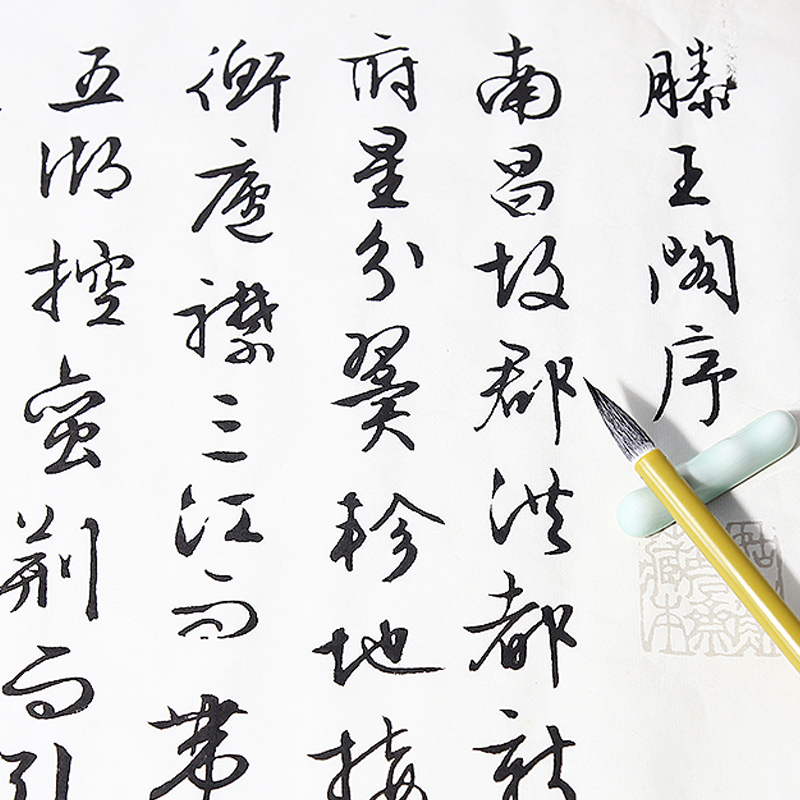 滕王閣序
南昌故郡洪都新
府星分翼軫地接
衡廬襟三江而帶
五湖控蠻荆而引